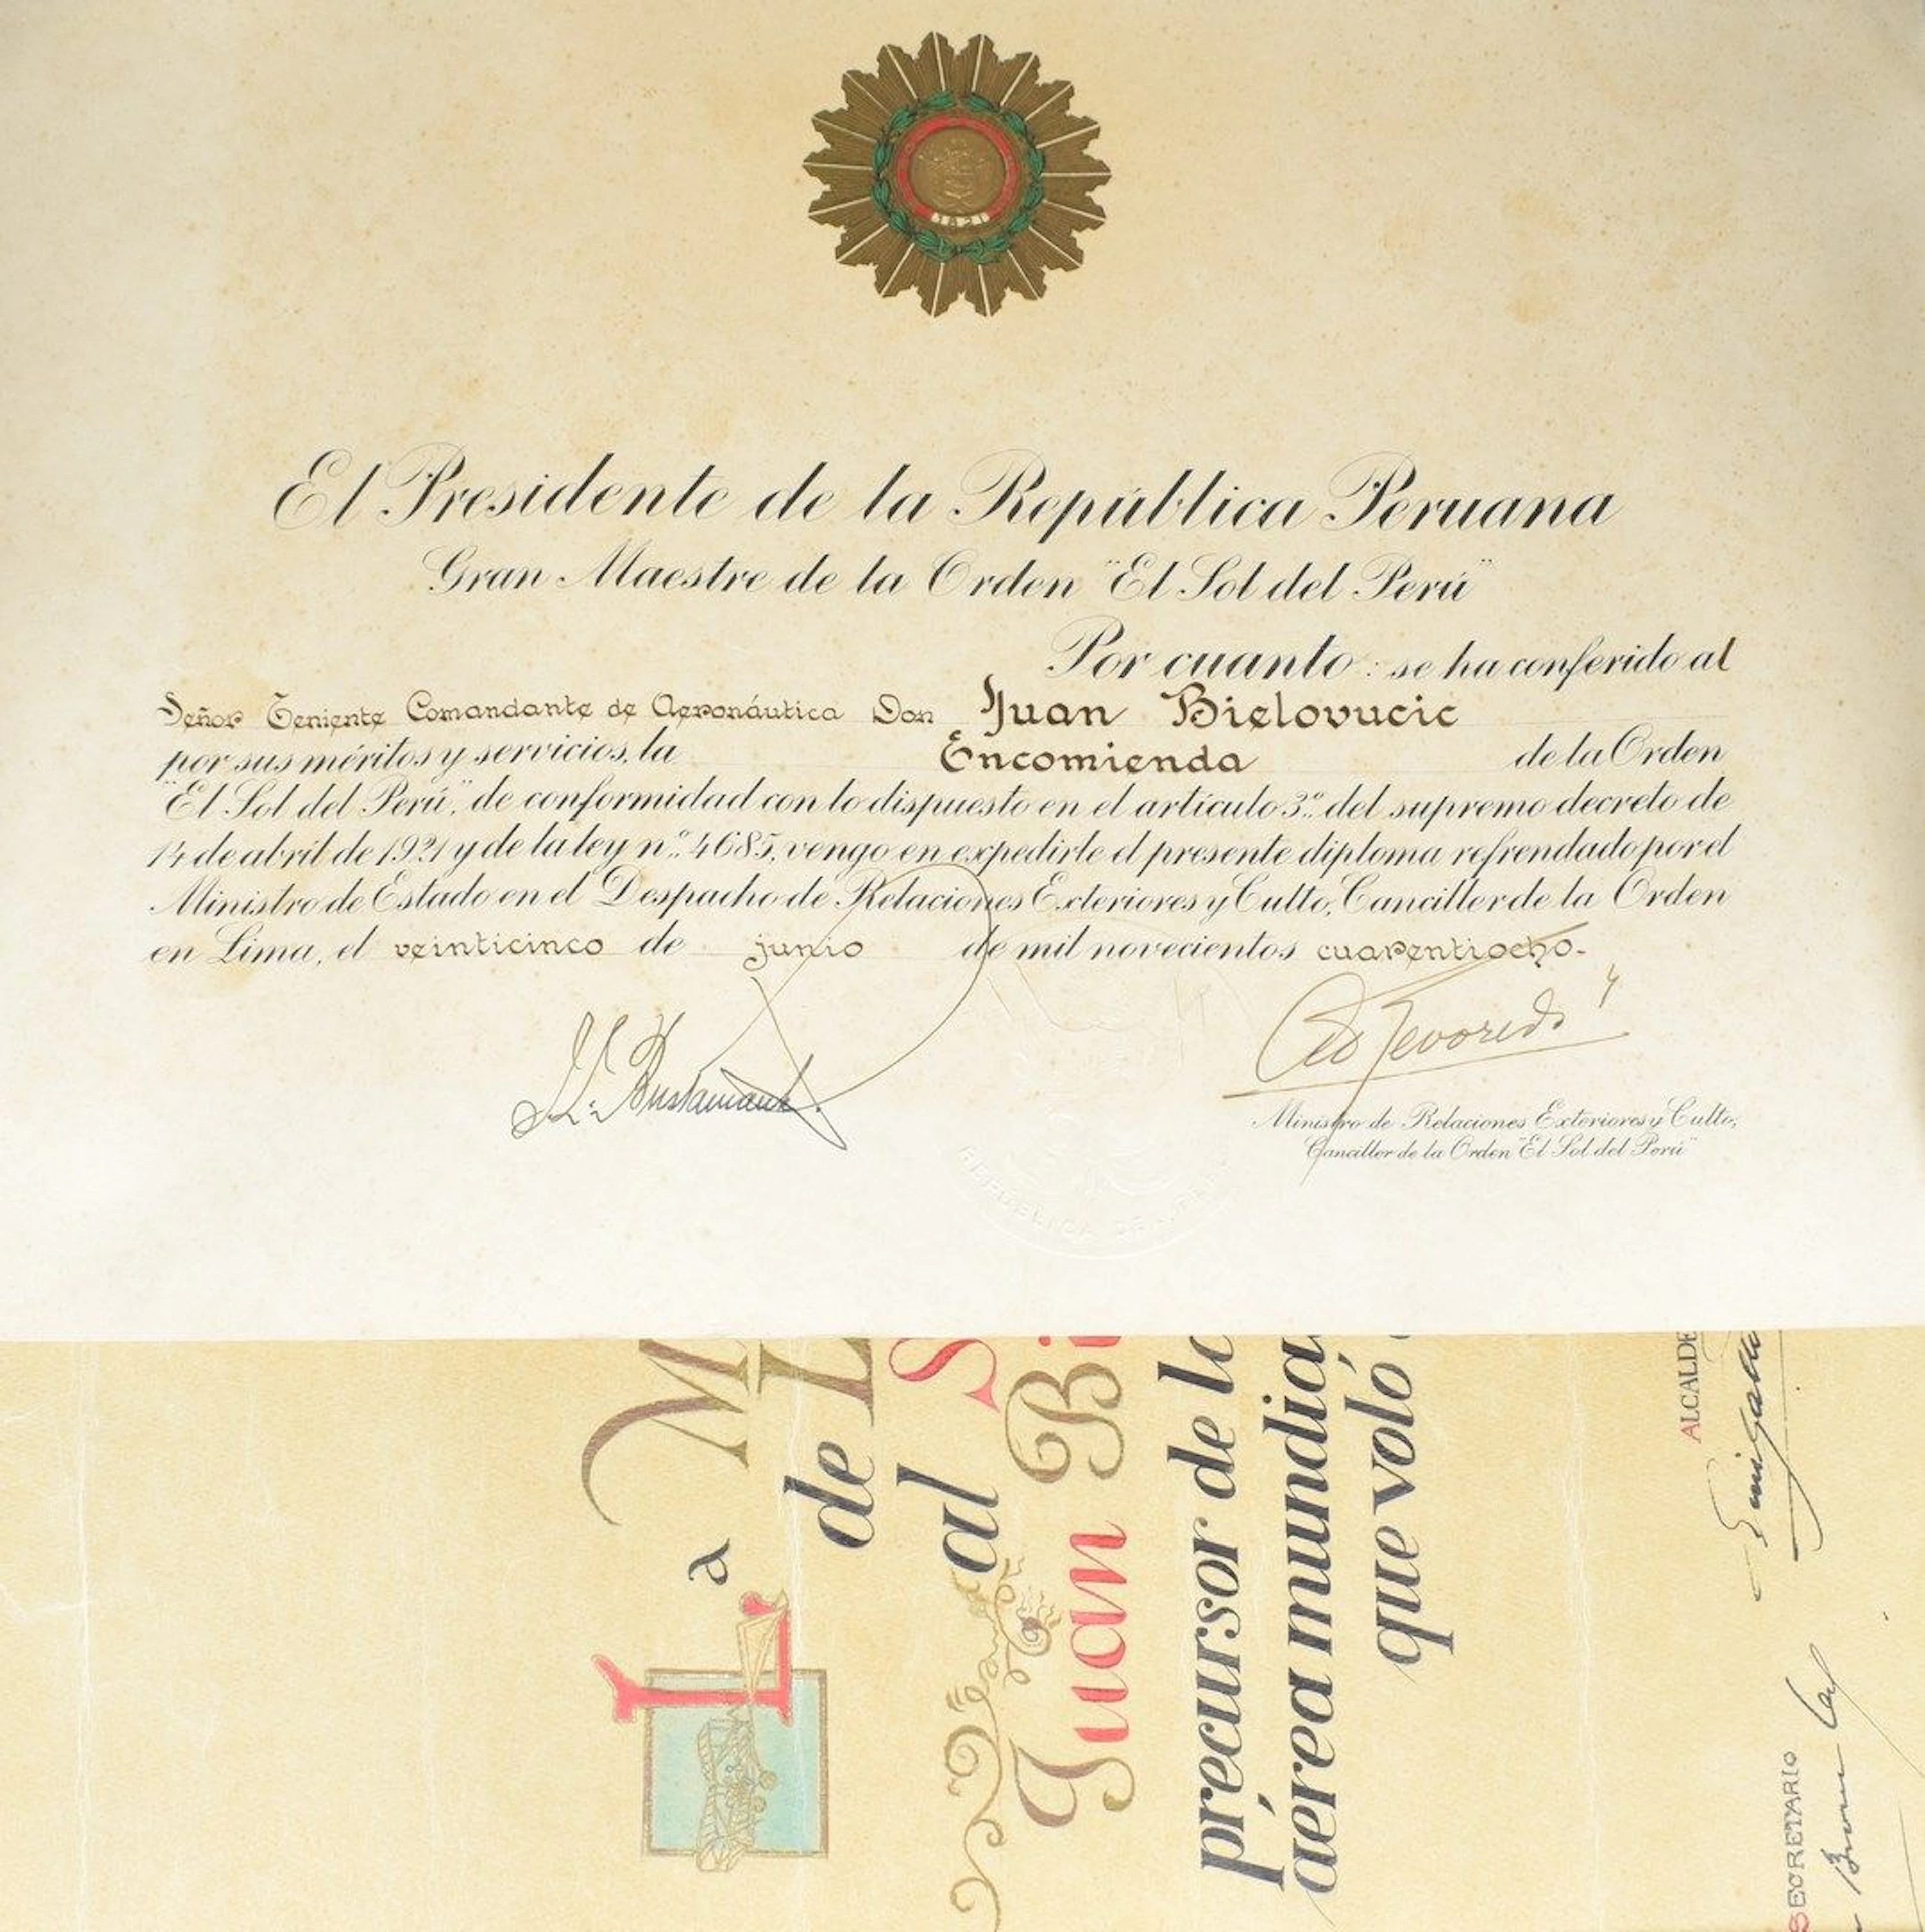 1821
El Presidente de la República Peruana
Gran Maestre de la Orden "El Sol del Perú"
Por cuanto: se ha conferido al
Señor Teniente Comandante de Aeronáutica Don Juan Bielovucic
por sus méritos y servicios, la Encomienda de la Orden
"El Sol del Perú", de conformidad con lo dispuesto en el artículo 3º. del supremo decreto de
14 de abril de 1921 y de la ley nº. 4685, vengo en expedirle el presente diploma refrendado por el
Ministro de Estado en el Despacho de Relaciones Exteriores y Culto, Canciller de la Orden
en Lima, el veinticinco de junio de mil novecientos cuarentiocho.-
J. L. Bustamante
Ministro de Relaciones Exteriores y Culto,
Canciller de la Orden "El Sol del Perú"
REPUBLICA DEL
La M
de L
al S
Juan Bi
precursor de la
aérea mundia
que voló
ALCALDE
SECRETARIO